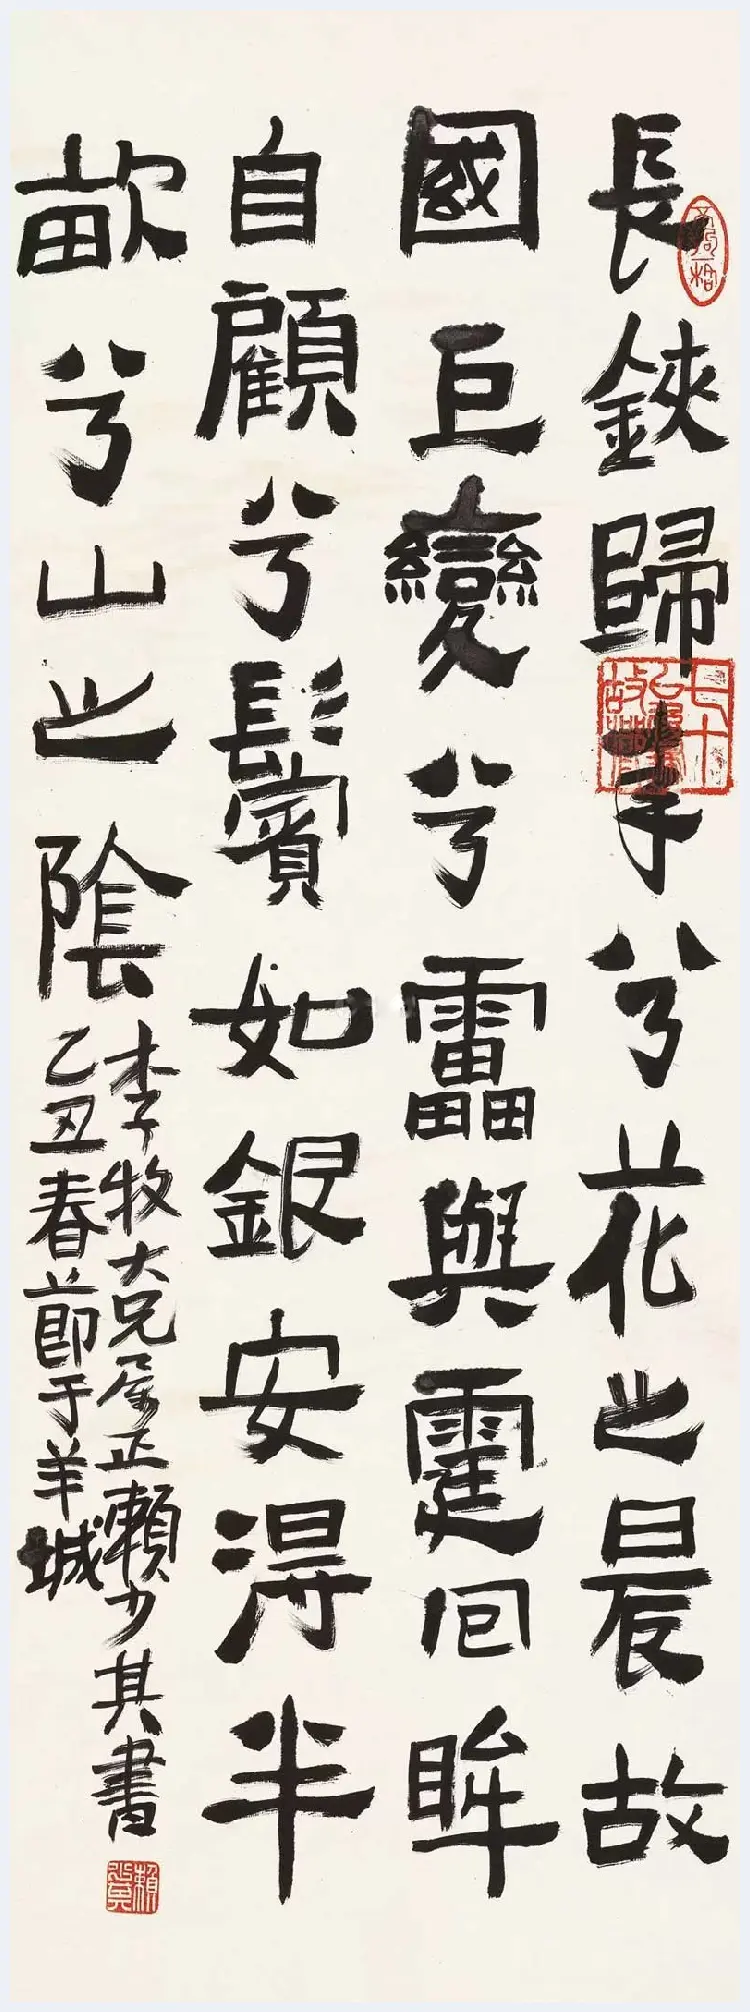 長鋏歸來兮花之晨故
國巨變兮靁與霆回眸
自顧兮鬢如銀安得半
畝兮山之陰
李牧大兄属正賴少其書
乙丑春節于羊城